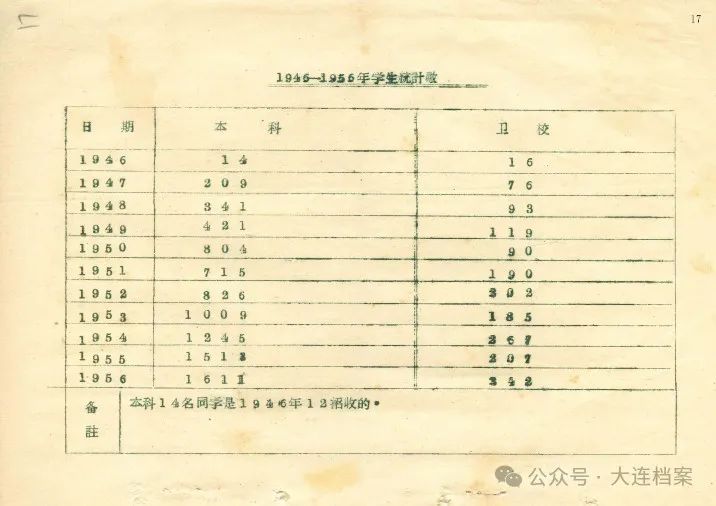 17
1946—1956年学生統計数
日期 本科 卫校
1946 14 16
1947 209 76
1948 341 93
1949 421 119
1950 804 90
1951 715 190
1952 826 202
1953 1009 185
1954 1245 267
1955 151 207
1956 1611 242
备註 本科14名同学是1946年12招收的.
公众号·大连档案